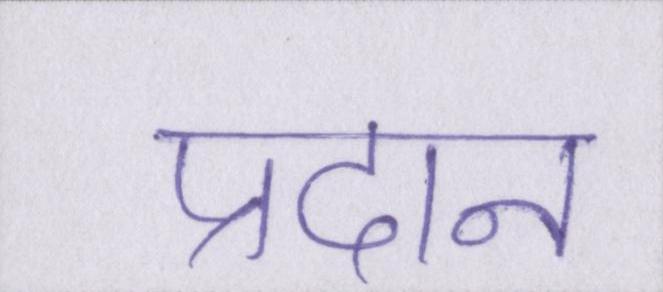 प्रदान